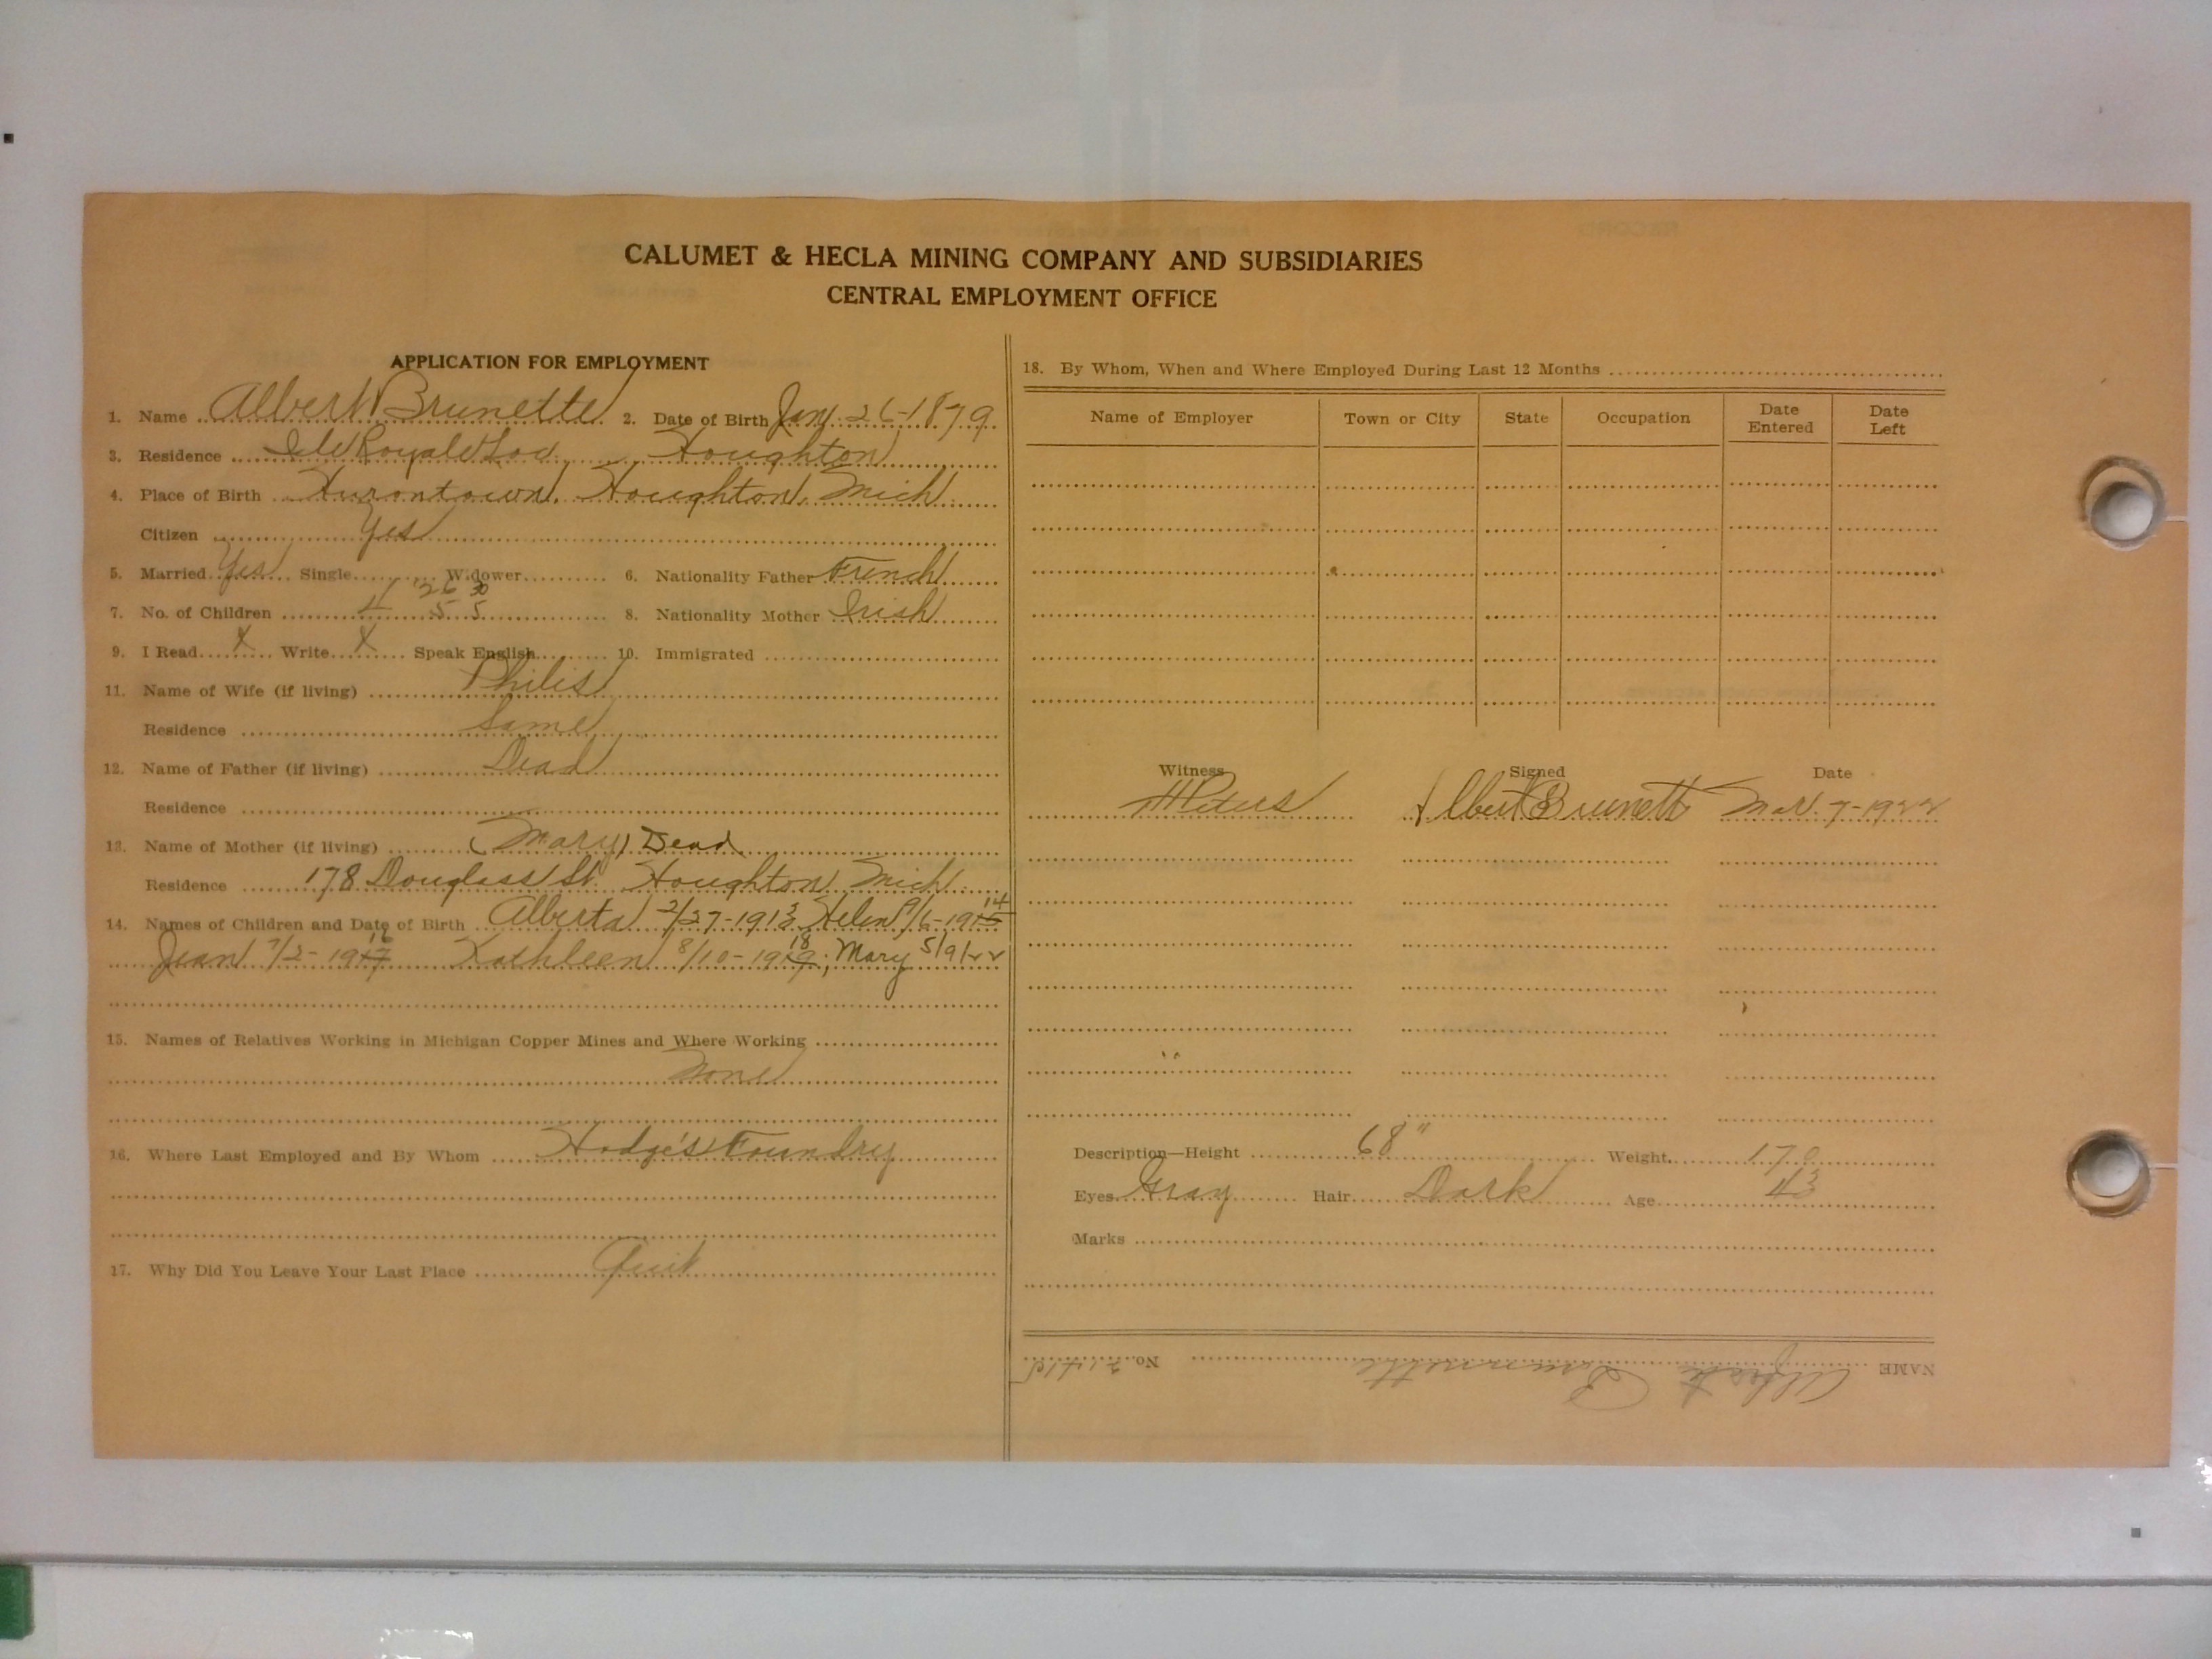 CALUMET & HECLA MINING COMPANY AND SUBSIDIARIES
CENTRAL EMPLOYMENT OFFICE
APPLICATION FOR EMPLOYMENT
1. Name Albert Brunette 2. Date of Birth Jany. 26-1879
3. Residence Isle Royale Loc. Houghton
4. Place of Birth Hurontown, Houghton, Mich.
Citizen Yes
5. Married Yes Single Widower 6. Nationality Father French
'26 30
7. No. of Children 4 5 5 8. Nationality Mother Irish
9. I Read X Write X Speak English 10. Immigrated
11. Name of Wife (if living) Philis
Residence Same
12. Name of Father (if living) Dead
Residence
13. Name of Mother (if living) (Mary) Dead
Residence 178 Douglass St. Houghton, Mich.
14. Names of Children and Date of Birth Alberta 2/27-1913 Helen 9/6-1915 14
Jean 7/2-1917 16 Kathleen 8/10-1919 18; Mary 5/9/22
15. Names of Relatives Working in Michigan Copper Mines and Where Working
None
16. Where Last Employed and By Whom Hodge's Foundry
17. Why Did You Leave Your Last Place Quit
18. By Whom, When and Where Employed During Last 12 Months
Name of Employer Town or City State Occupation Date Entered Date Left
Witness Signed Date
Peters Albert Brunett Mar. 7-1922
Description—Height 68" Weight 170
Eyes Gray Hair Dark Age 43
Marks
NAME Brunette No.